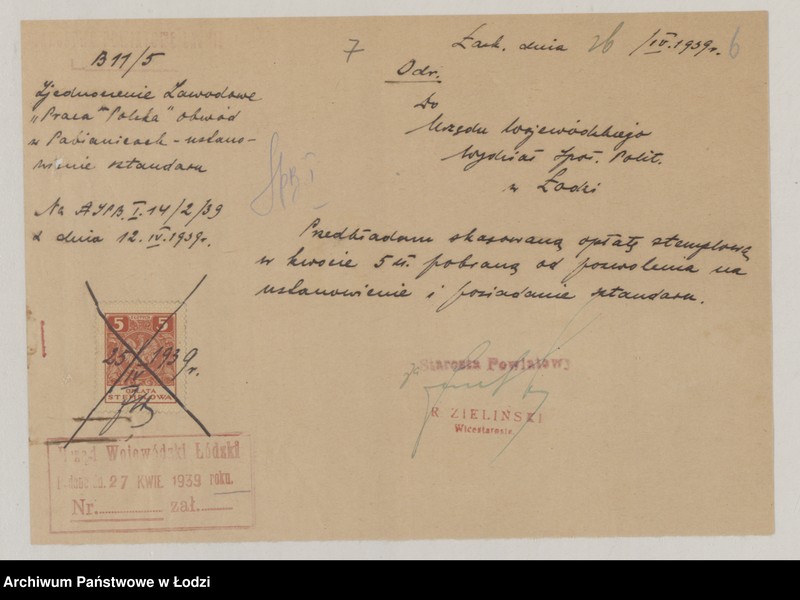 B11/5
7
Łask, dnia 26/IV.1939r.
6
Odr.
Zjednoczenie Zawodowe
„Praca Polska" obwód
w Pabianicach - ustano-
wienie sztandaru
Na ASPB.I.14/2/39
z dnia 12.IV.1939r.
SPB I
Do
Urzędu Wojewódzkiego
Wydział Społ. Polit.
w Łodzi
Przedkładam skasowaną opłatę stemplową
w kwocie 5 zł. pobraną od pozwolenia na
ustanowienie i posiadanie sztandaru.
5 5
25 1939r.
IV
OPŁATA
STEMPLOWA
Starosta Powiatowy
R. ZIELIŃSKI
Wicestarosta
Urząd Wojewódzki Łódzki
27 KWIE 1939 roku.
Nr. zał.
Archiwum Państwowe w Łodzi